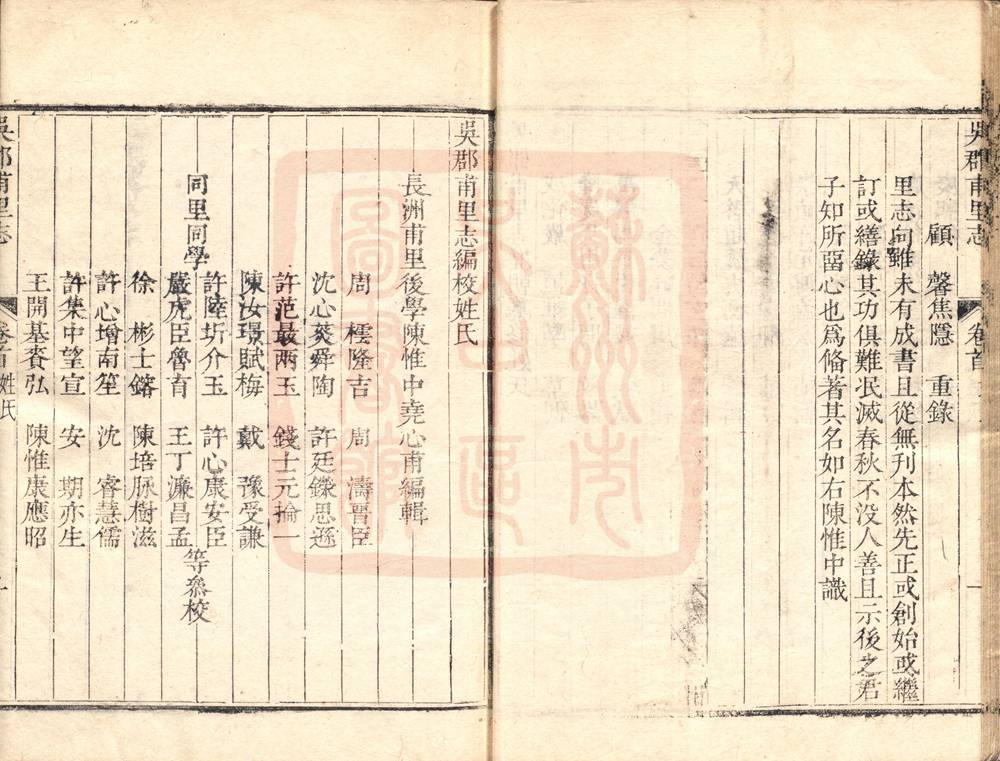 吳郡甫里志
卷首
一
顧　馨焦隱　重錄
里志向雖未有成書且從無刊本然先正或創始或繼
訂或繕錄其功俱難泯滅春秋不没人善且示後之君
子知所畱心也爲俻著其名如右陳惟中識
吳郡甫里志編校姓氏
長洲甫里後學陳惟中堯心甫編輯
周　樗隆吉　周　濤晉臣
沈心葵舜陶　許廷鑅思遜
許范最两玉　錢士元掄一
陳汝璟賦梅　戴　豫受謙
同里同學　許陸圻介玉　許心康安臣　等叅校
嚴虎臣魯育　王丁濂昌孟
徐　彬士鎔　陳培脉樹滋
許心增南笙　沈　睿慧儒
許集中望宣　安　期亦生
王開基賚弘　陳惟康應昭
吳郡甫里志
卷首姓氏
一